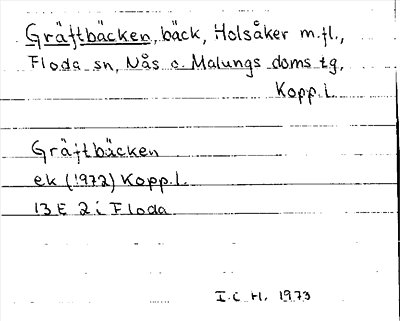 Gräftbäcken, bäck, Holsåker m.fl.,
Floda sn, Nås o. Malungs doms tg,
Kopp.l.
Gräftbäcken
ek (1972) Kopp.l.
13E 2i Floda
I.C.H. 1973